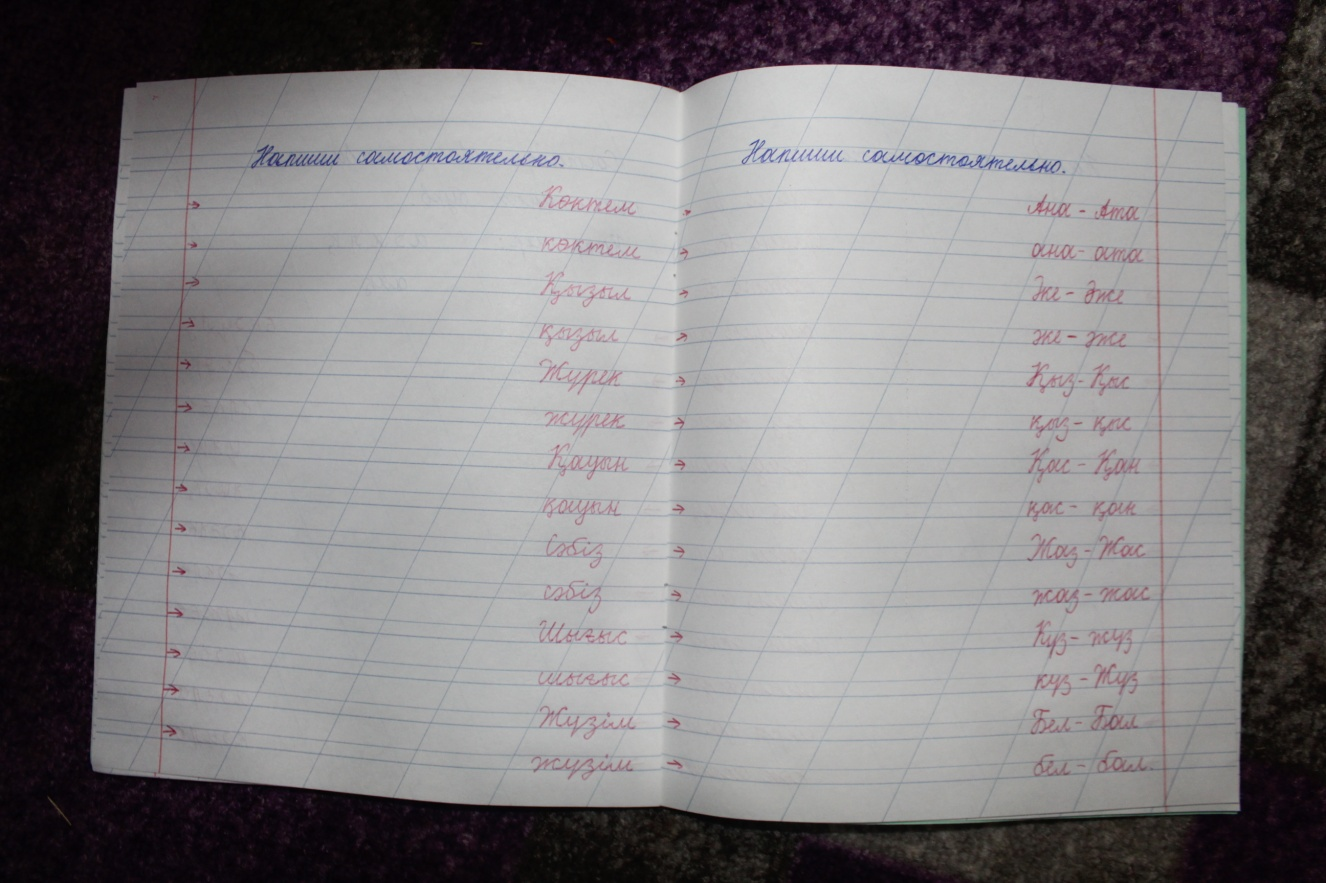 Напиши самостоятельно.
Көктем
көктем
Қызыл
қызыл
Жүрек
жүрек
Қауын
қауын
Сәбіз
сәбіз
Шығыс
шығыс
Жүзім
жүзім
Напиши самостоятельно.
Ана - Ата
ана - ата
Әже
әже
Қыз - Қыс
қыз - қыс
Қас - Қан
қас - қан
Жаз - Жас
жаз - жас
Күз - жүз
күз - Жүз
Бел - Бал
бел - бал.